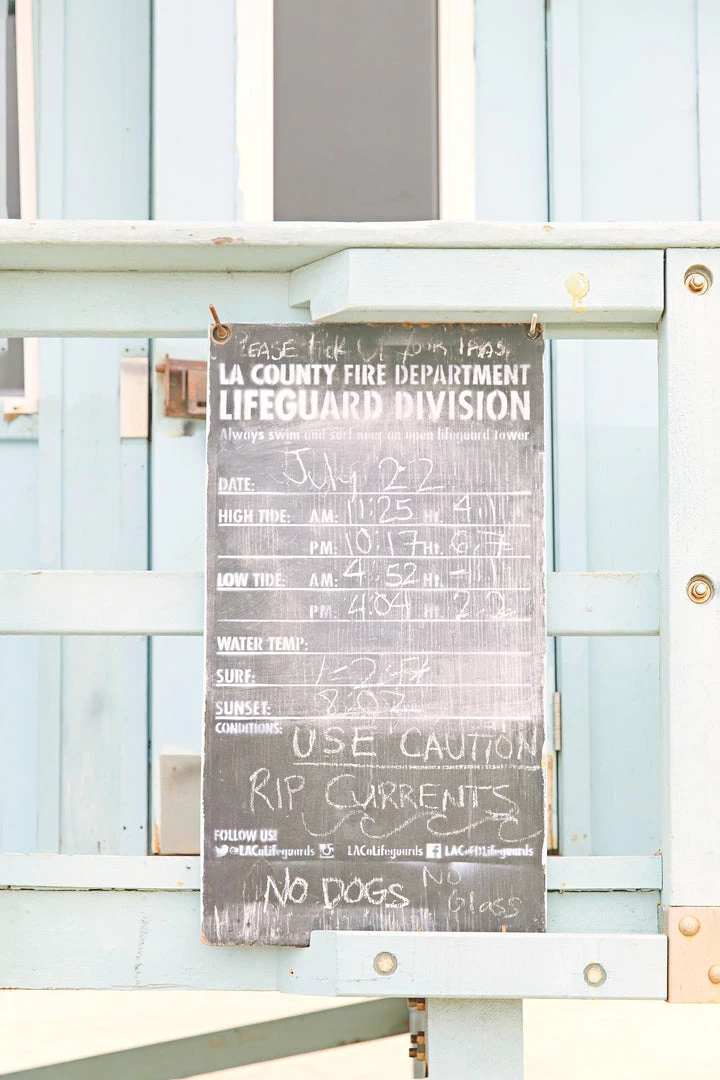 PLEASE PICK UP YOUR TRASH
LA COUNTY FIRE DEPARTMENT
LIFEGUARD DIVISION
Always swim and surf near an open lifeguard tower
DATE: July 22
HIGH TIDE: AM: 11:25 Ht. 4.1
PM: 10:17 Ht. 6.7
LOW TIDE: AM: 4:52 Ht. -.1
PM: 4:04 Ht. 2.2
WATER TEMP:
SURF: 1-2 FT
SUNSET: 8:02
CONDITIONS: USE CAUTION
RIP CURRENTS
FOLLOW US!
@LACoLifeguards LACoLifeguards LACoFDLifeguards
NO DOGS NO Glass